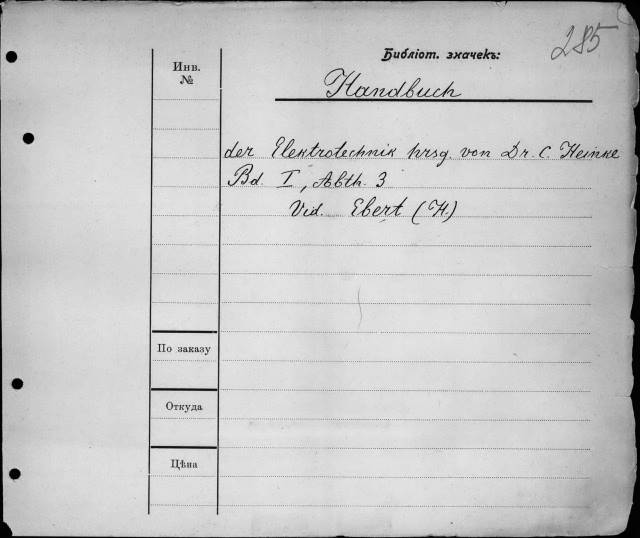 285
Библіот. значекъ:
Инв.
№
Handbuch
der Elektrotechnik hrsg. von Dr. C. Heinke
Bd. I, Abth. 3
Vid. Ebert (H.)
По заказу
Откуда
Цѣна